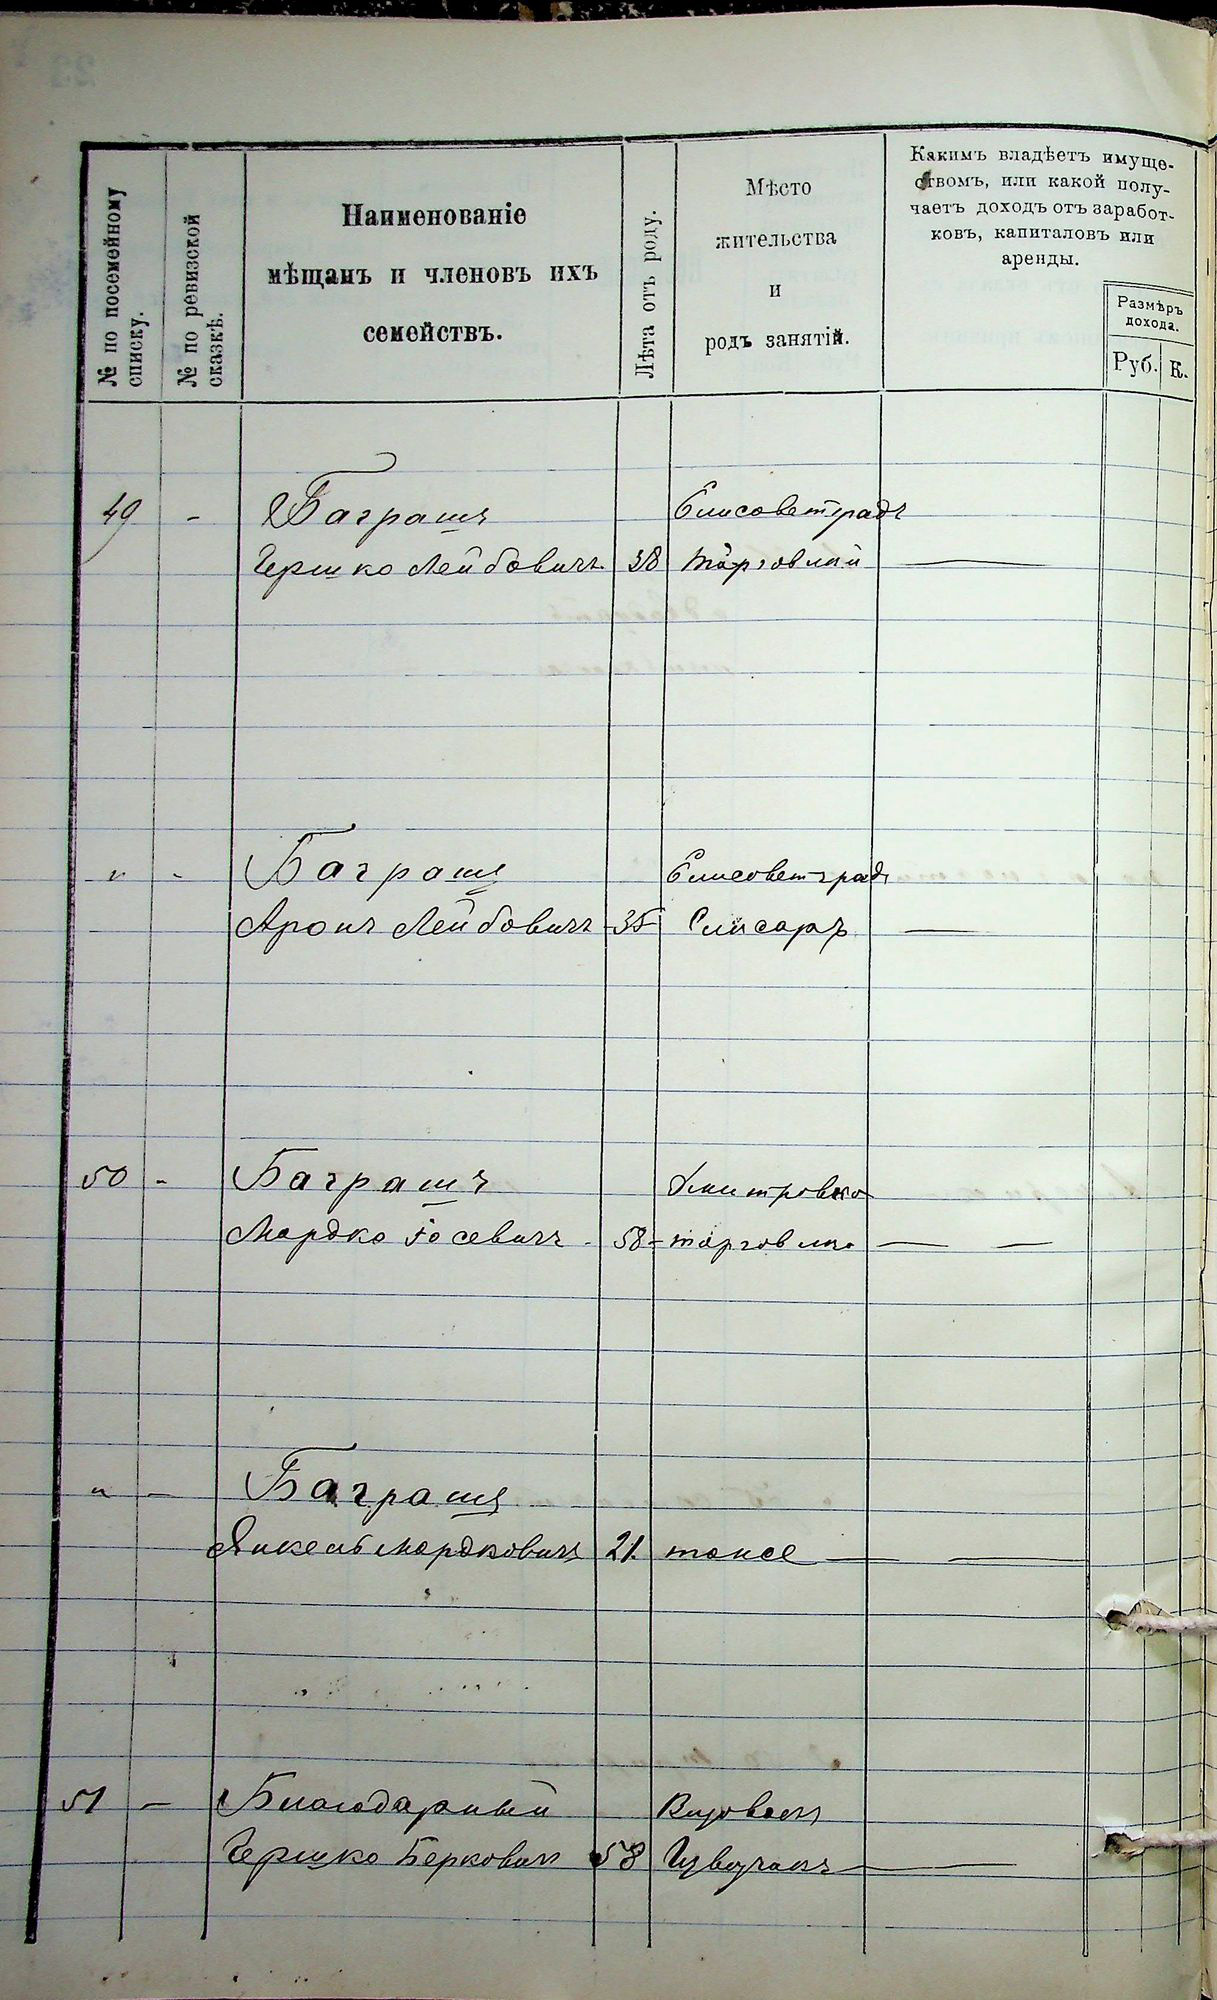 № по посемейному списку.
№ по ревизской сказкѣ.
Наименованіе
мѣщанъ и членовъ ихъ
семействъ.
Лѣта отъ роду.
Мѣсто
жительства
и
родъ занятій.
Какимъ владѣетъ имуще-
ствомъ, или какой полу-
чаетъ доходъ отъ заработ-
ковъ, капиталовъ или
аренды.
Размѣръ
дохода.
Руб. К.
49 - Баграшъ Елисаветградъ
Гершко Лейбовичъ 38 торговлей —
" - Баграшъ Елисаветградъ
Аронъ Лейбовичъ 35 Слисаръ —
50 - Баграшъ Дмитровка
Мордко Іосевичъ - 58 - торговля — —
" — Баграшъ
Янкель Мордковичъ 21. тоже — —
51 — Благодарный
Гершко Берковичъ 58 —